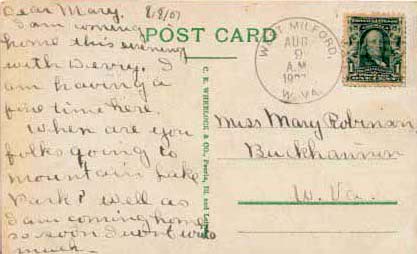 Dear Mary.
8/8/07
I am coming
home this evening
with Denny. I
am having a
fine time here.
When are you
folks going to
Mountain Lake
Park? Well as
I am coming home
so soon I wont write
much.
POST CARD
C. E. WHEELOCK & CO., Peoria, Ill. and
WEST MILFORD,
AUG
9
A.M
W. VA.
1
Miss Mary Robinson
Buckhannon
W. Va.